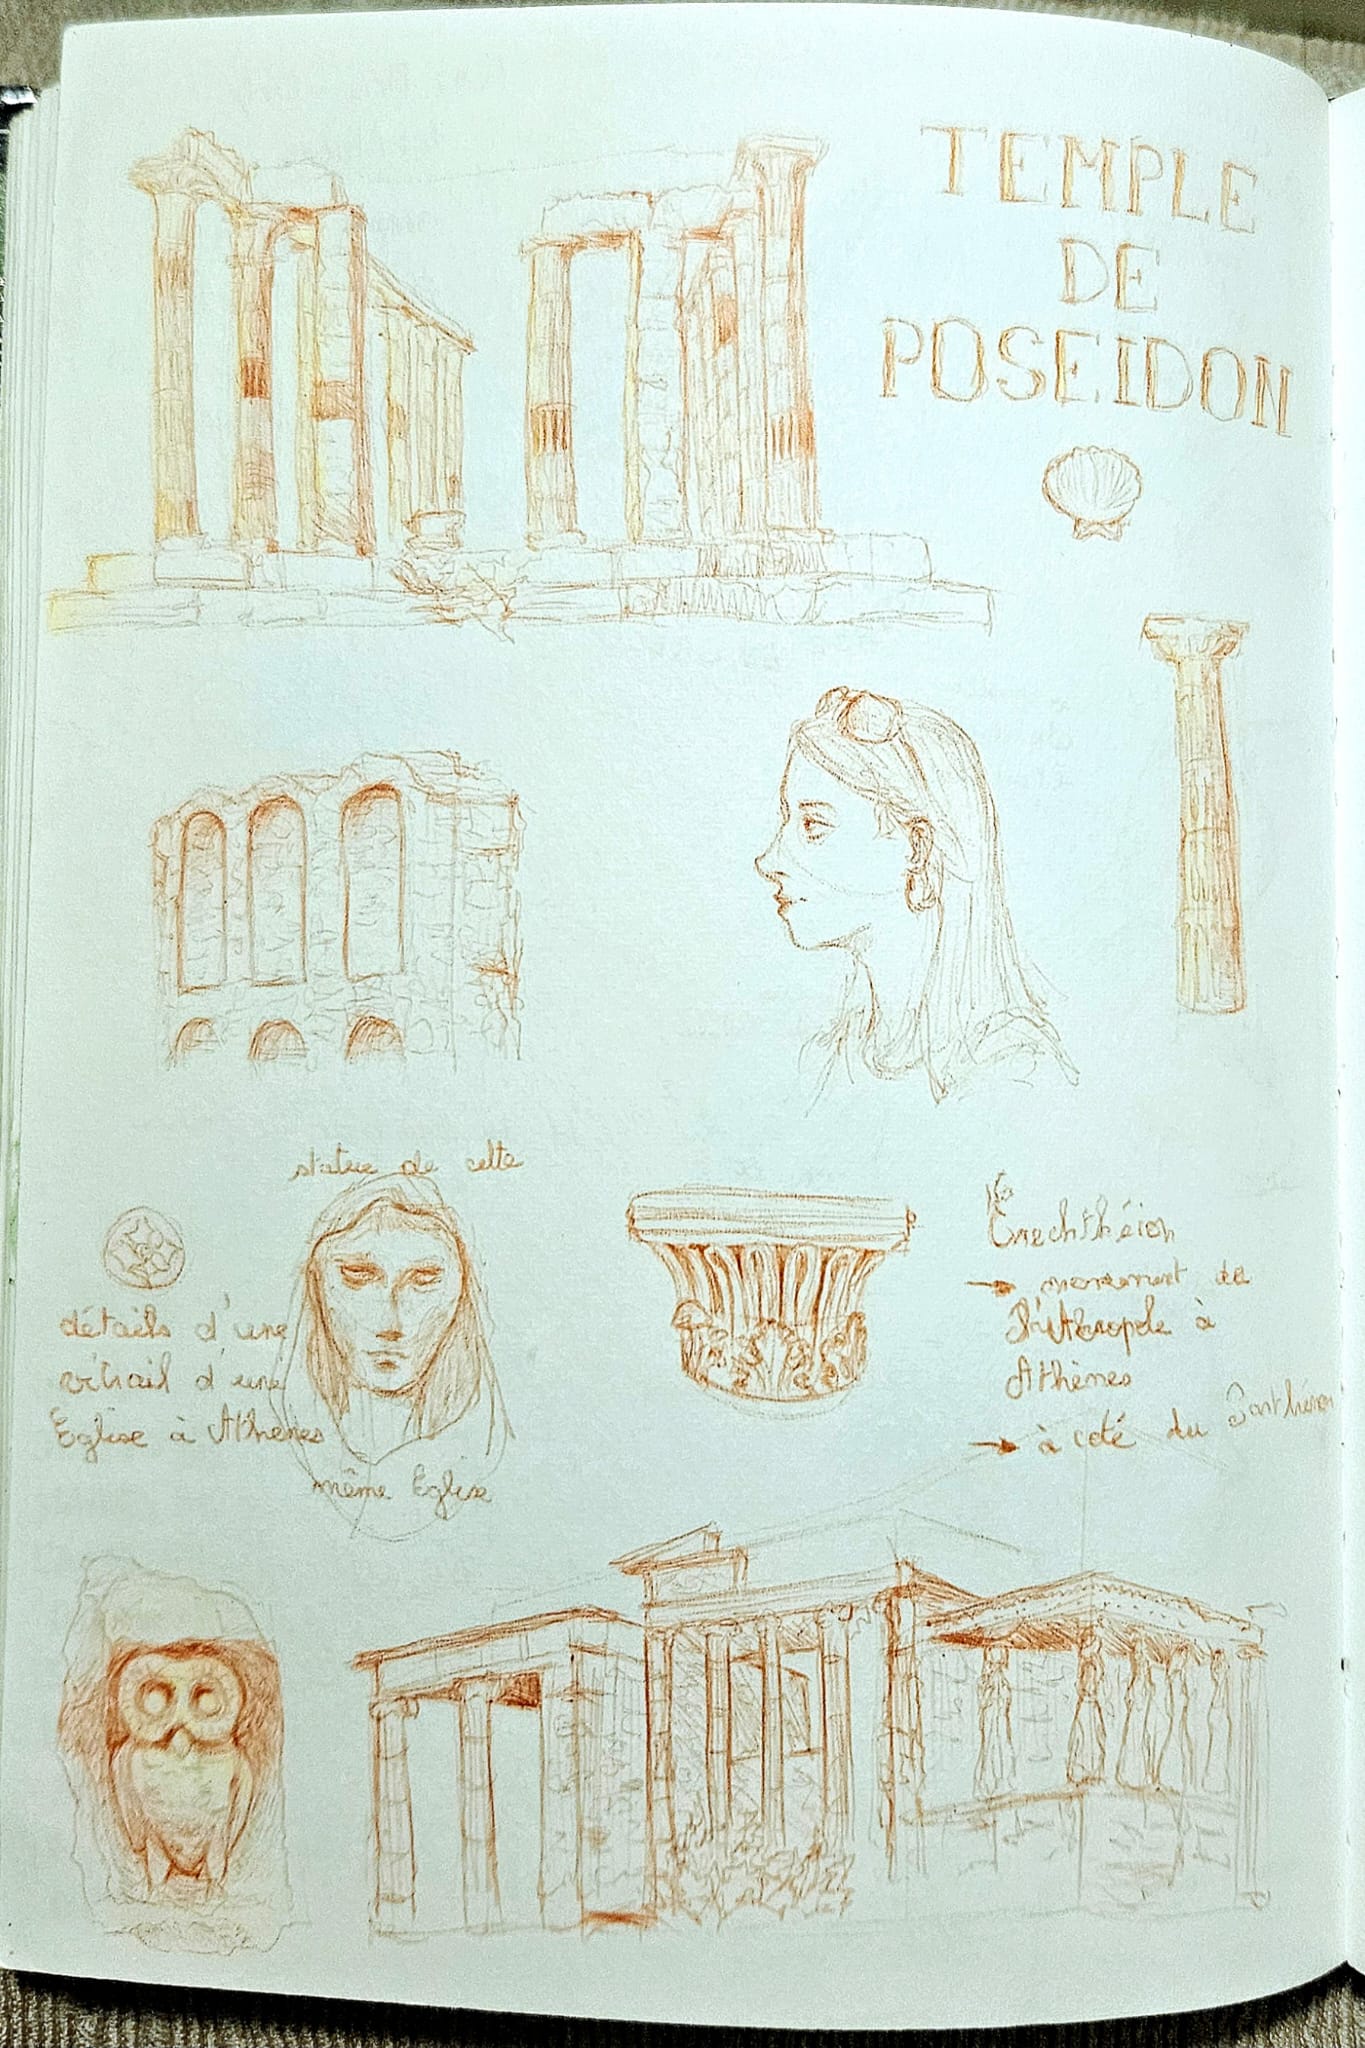 TEMPLE
DE
POSEIDON
statue de cette
même Eglise
détails d'une
vitrail d'une
Eglise à Athènes
Erechthéion
→ monument de
l'Acropole à
Athènes
→ à coté du Parthénon